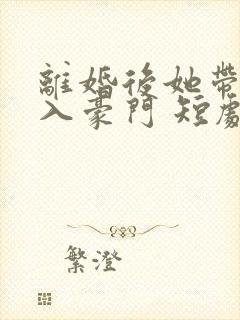 離婚後她帶
入豪門 短劇
繁澄